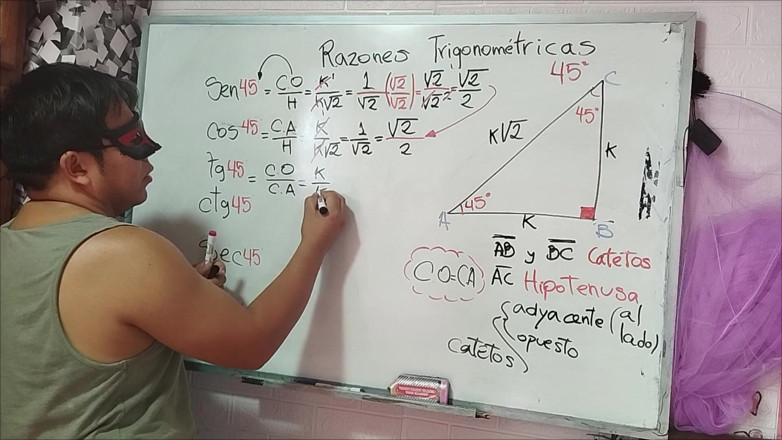 Razones Trigonométricas
Sen45 = CO/H = K1/K√2 = 1/√2 (√2/√2) = √2/√2² = √2/2
Cos45 = C.A/H K/K√2 = 1/√2 = √2/2
Tg45 = CO/C.A = K
Ctg45
Sec45
45°
C
45°
K√2
K
A
45°
K
B
AB y BC Catetos
CO=CA
AC Hipotenusa
Catetos { adyacente (al lado)
opuesto